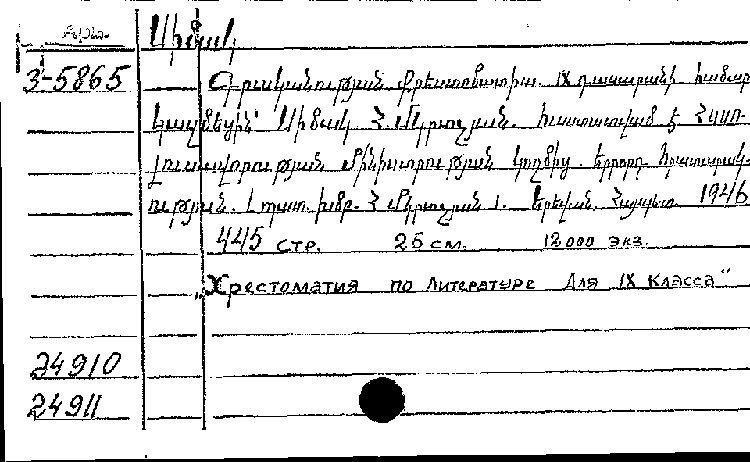 3-5865
Գրականության Քրեստոմատիա. IX դասարանի համար
Կազմեցին՝ Սիմակ Հ. Մկրտչյան. հաստատված է ՀՍՍՌ
լուսավորության Մինիստրության կողմից. երրորդ հրատարակ-
ություն. Երևան. Հայպետ 1946
445 стр. 26 см. 12000 экз.
„Хрестоматия по литературе для IX класса"
24910
24911